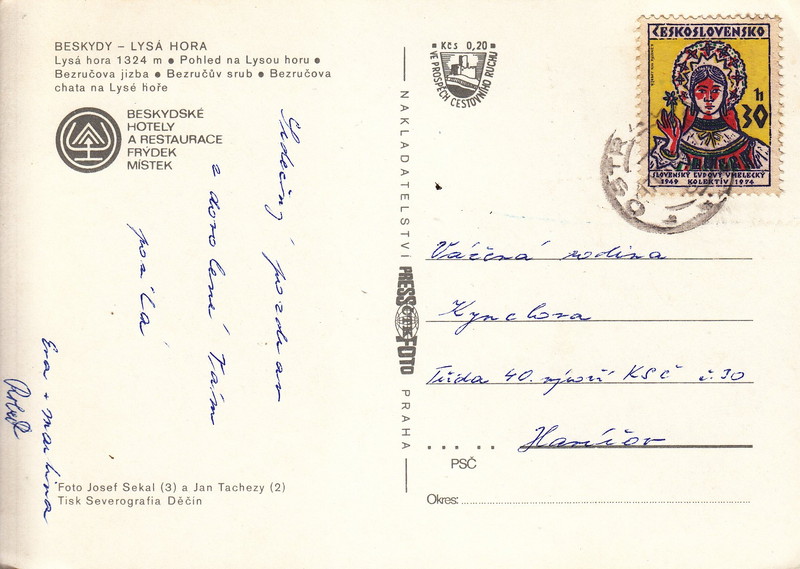 BESKYDY – LYSÁ HORA
Lysá hora 1324 m ● Pohled na Lysou horu ●
Bezručova jizba ● Bezručův srub ● Bezručova
chata na Lysé hoře
BESKYDSKÉ
HOTELY
A RESTAURACE
FRÝDEK
MÍSTEK
Srdečný pozdrav
z dovolené Vám
posílá
Eva + Martina
Robert
Foto Josef Sekal (3) a Jan Tachezy (2)
Tisk Severografia Děčín
NAKLADATELSTVÍ PRESSFOTO PRAHA
Kčs 0,20
VE PROSPĚCH CESTOVNÍHO RUCHU
ČESKOSLOVENSKO
30 h
SLOVENSKÝ ĽUDOVÝ UMELECKÝ
1949 KOLEKTÍV 1974
OSTR
Vážená rodina
Kynclova
Třída 40. výročí KSČ č. 30
Havířov
PSČ
Okres: